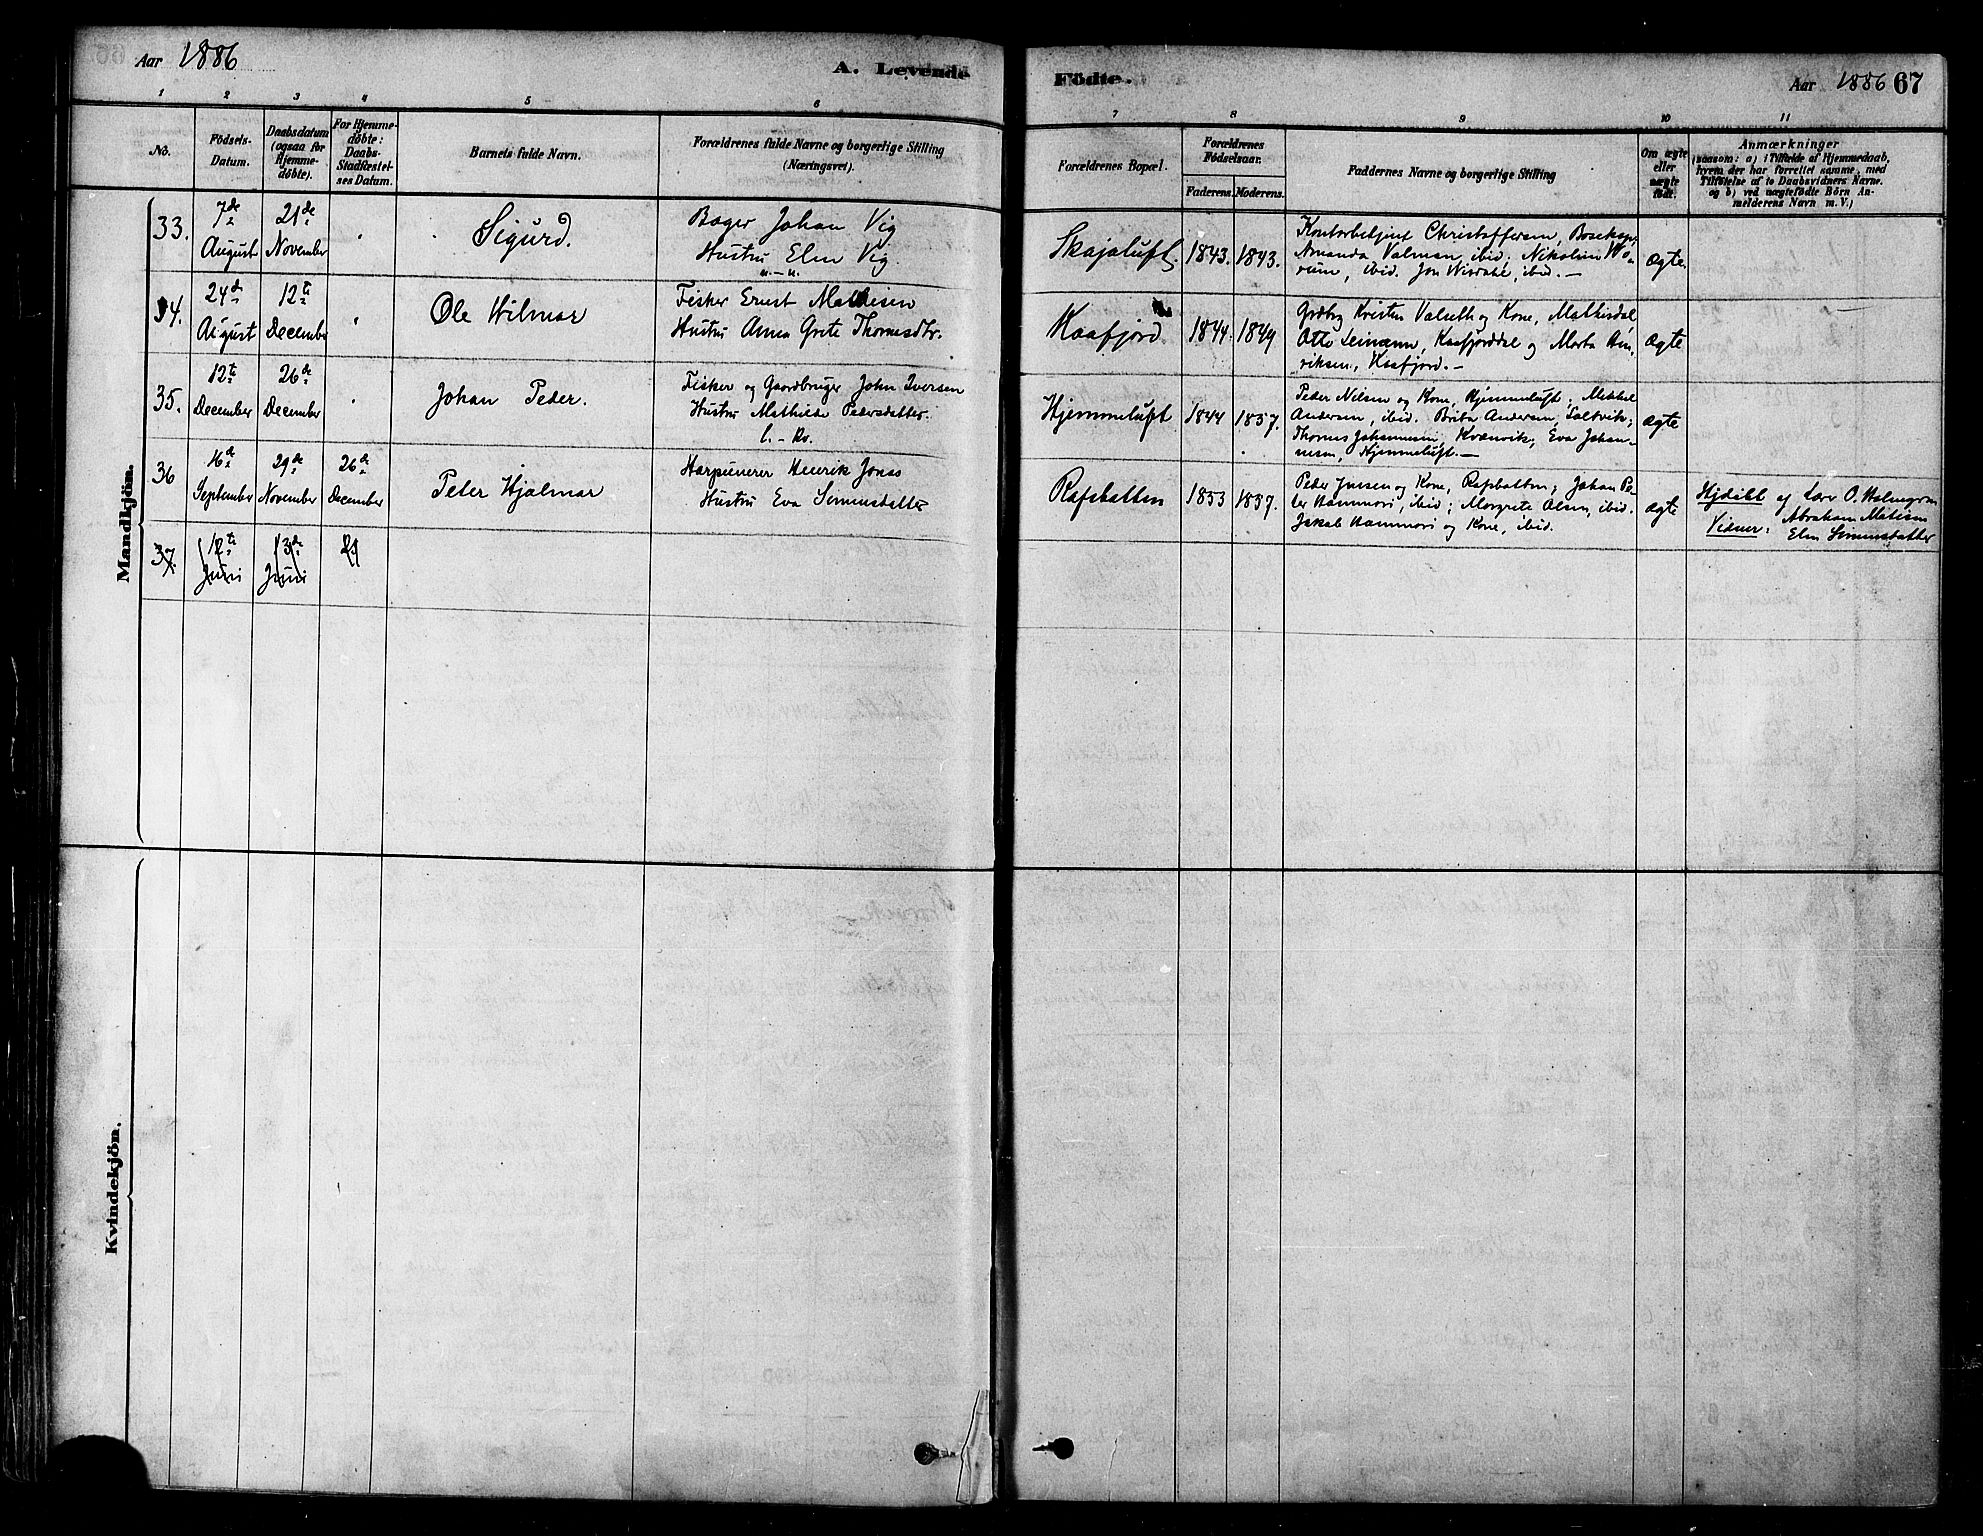 Aar 1886
A. Levende
Födte.
Aar 1886 67
1 2 3 4 5 6 7 8 9 10 11
No.
Födsels-
Datum.
Daabsdatum
(ogsaa for
Hjemme-
döbte).
For Hjemme-
döbte:
Daabs-
Stadfæstel-
ses Datum.
Barnets fulde Navn.
Forældrenes fulde Navne og borgerlige Stilling
(Næringsvei).
Forældrenes Bopæl.
Forældrenes
Födselsaar.
Faderens. Moderens.
Faddernes Navne og borgerlige Stilling
Om ægte
eller
uægte
födt.
Anmærkninger
(saasom: a) i Tilfælde af Hjemmedaab,
hvem der har forrettet samme, med
Tilföielse af to Daabsvidners Navne.
og b) ved uægtefödte Börn An-
melderens Navn m.V.)
Mandkjön.
33.
7de
August
21de
November
Sigurd.
Bager Johan Vig
Hustru Elen Vig.
n.-n.
Skajaluft
1843. 1843.
Kontorbetjent Christoffersen, Bosekop;
Amanda Valman, ibid. Nikoline
ibid. Jon ibid. —
ægte.
34.
24de
August
12te
December
Ole Hilmar
Fisker Ernst Mathisen
Hustru Anna Grete Thomasdtr.
Kaafjord
1844. 1849
Grdbrg Kristen Valseth og Kone, Mathisdal,
Otto Leinænn, Kaafjorddal og Marta Hen-
riksen, Kaafjord. —
ægte
35.
12te
December
26de
December
Johan Peder.
Fisker og Gaardbruger John Iversen
Hustru Mathilde Pedersdatter.
l. - kv.
Hjemmeluft
1844 1857.
Peder Nilsen og Kone, Hjemmeluft; Mikkel
Andersen, ibid. Brita Andersen, Saltvik;
Thomas Johannesen, Kvænvik, Eva Johan-
nesen, Hjemmeluft. —
ægte
36
16de
September
29de
November
26de
December
Peter Hjalmar
Harpunerer Henrik Jonas
Hustru Eva Simonsdatter
Rafsbotten
1853 1857.
Peder og Kone, Rafsbotten; Johan Pe-
ter Hammari, ibid; Margrete Olsen, ibid.
Jakob Hammari og Kone, ibid.
ægte
Hjdöbt af Lærer O. Holmgren
Vidner: Abraham Matisen
Elen Simonsdatter
37.
12te
Juni
3de
Juni
Kvindekjön.